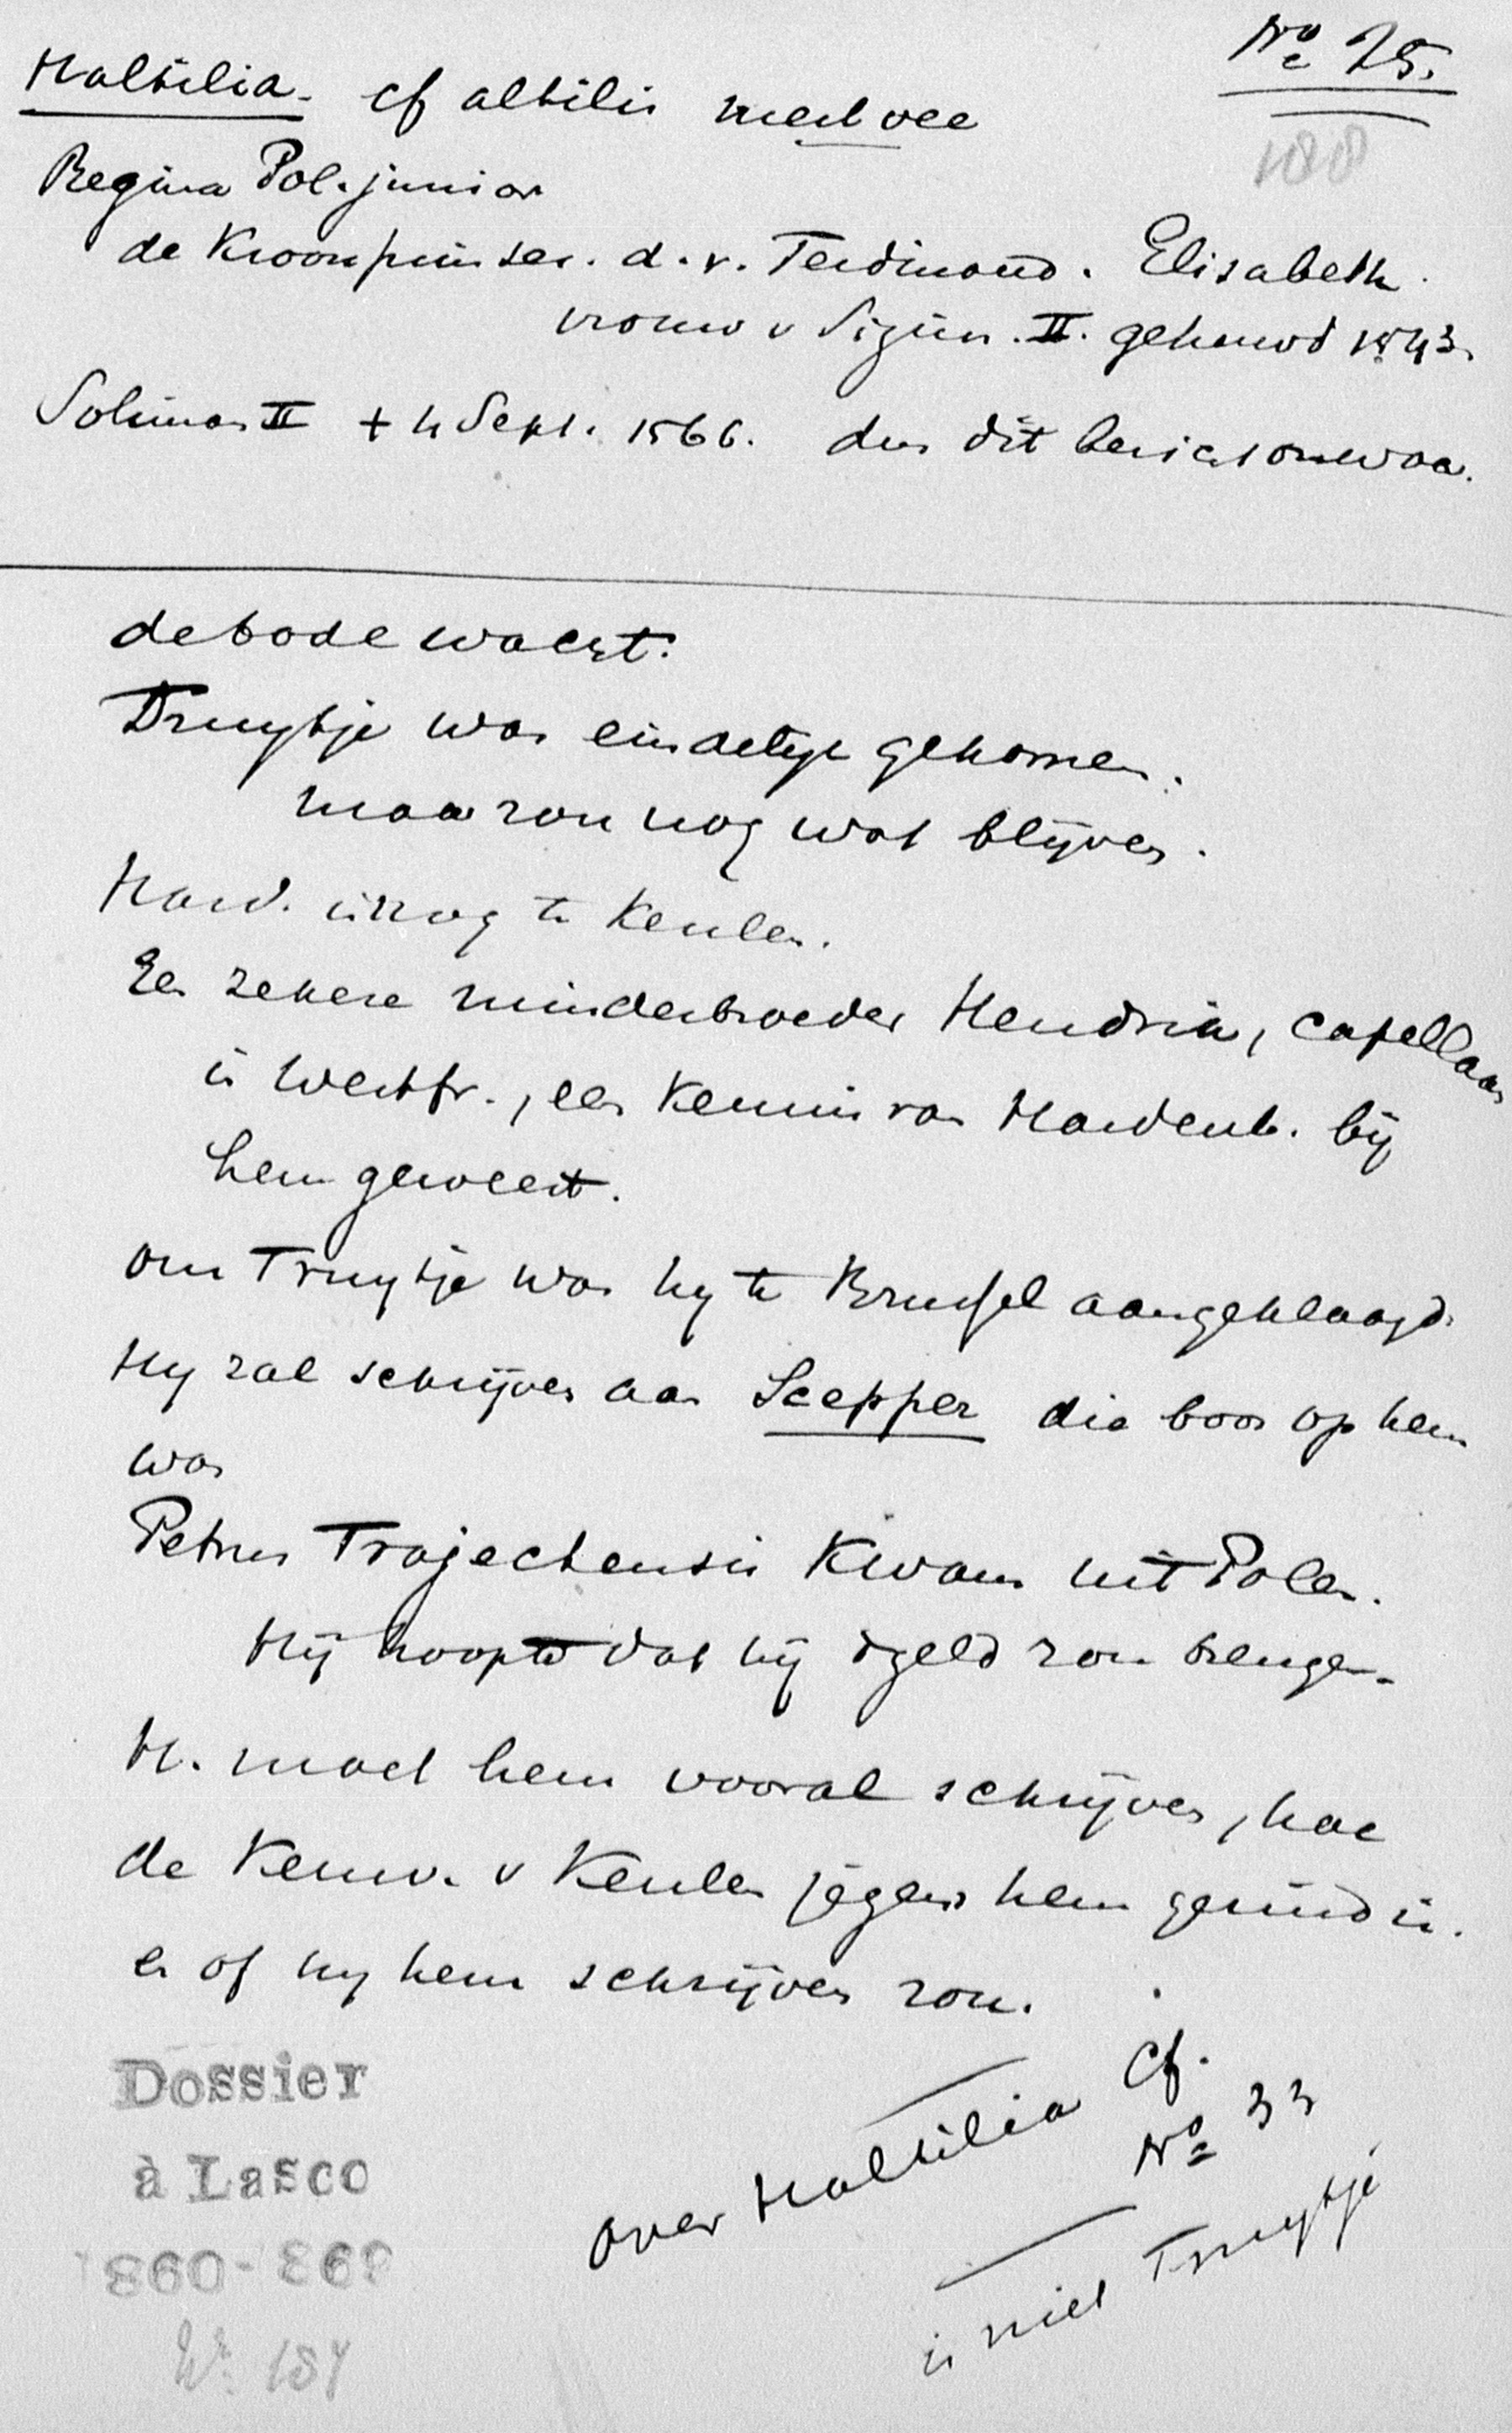 No 25.
188
Haltilia. cf altilis mestvee
Regina Pol. junior
de Kroonprinses. d. v. Ferdinand. Elisabeth.
vrouw v Sigism. II. gehuwd 1543.
Soliman II + 4 Sept. 1566. dus dit bericht onwaa.
de bode wacht.
Truytje was eindelijk gekomen.
maar zou nog wat blijven.
Hard. is nog te Keulen.
Een zekere minderbroeder Hendrik, capellaan
in Westfr., een kennis van Hardenb. bij
hem geweest.
om Truytje was hy te Brussel aangeklaagd.
Hy zal schrijven aan Scepper die boos op hem
was
Petrus Trajectensis kwam uit Polen.
Hij hoopte dat hij geld zou brengen.
H. moet hem vooral schrijven, hoe
de Keurv. v Keulen jegens hem gezind is.
en of hy hem schrijven zou.
Dossier
à Lasco
860-869
No 184
over Haltilia Cf.
No 33
is niet Truytje